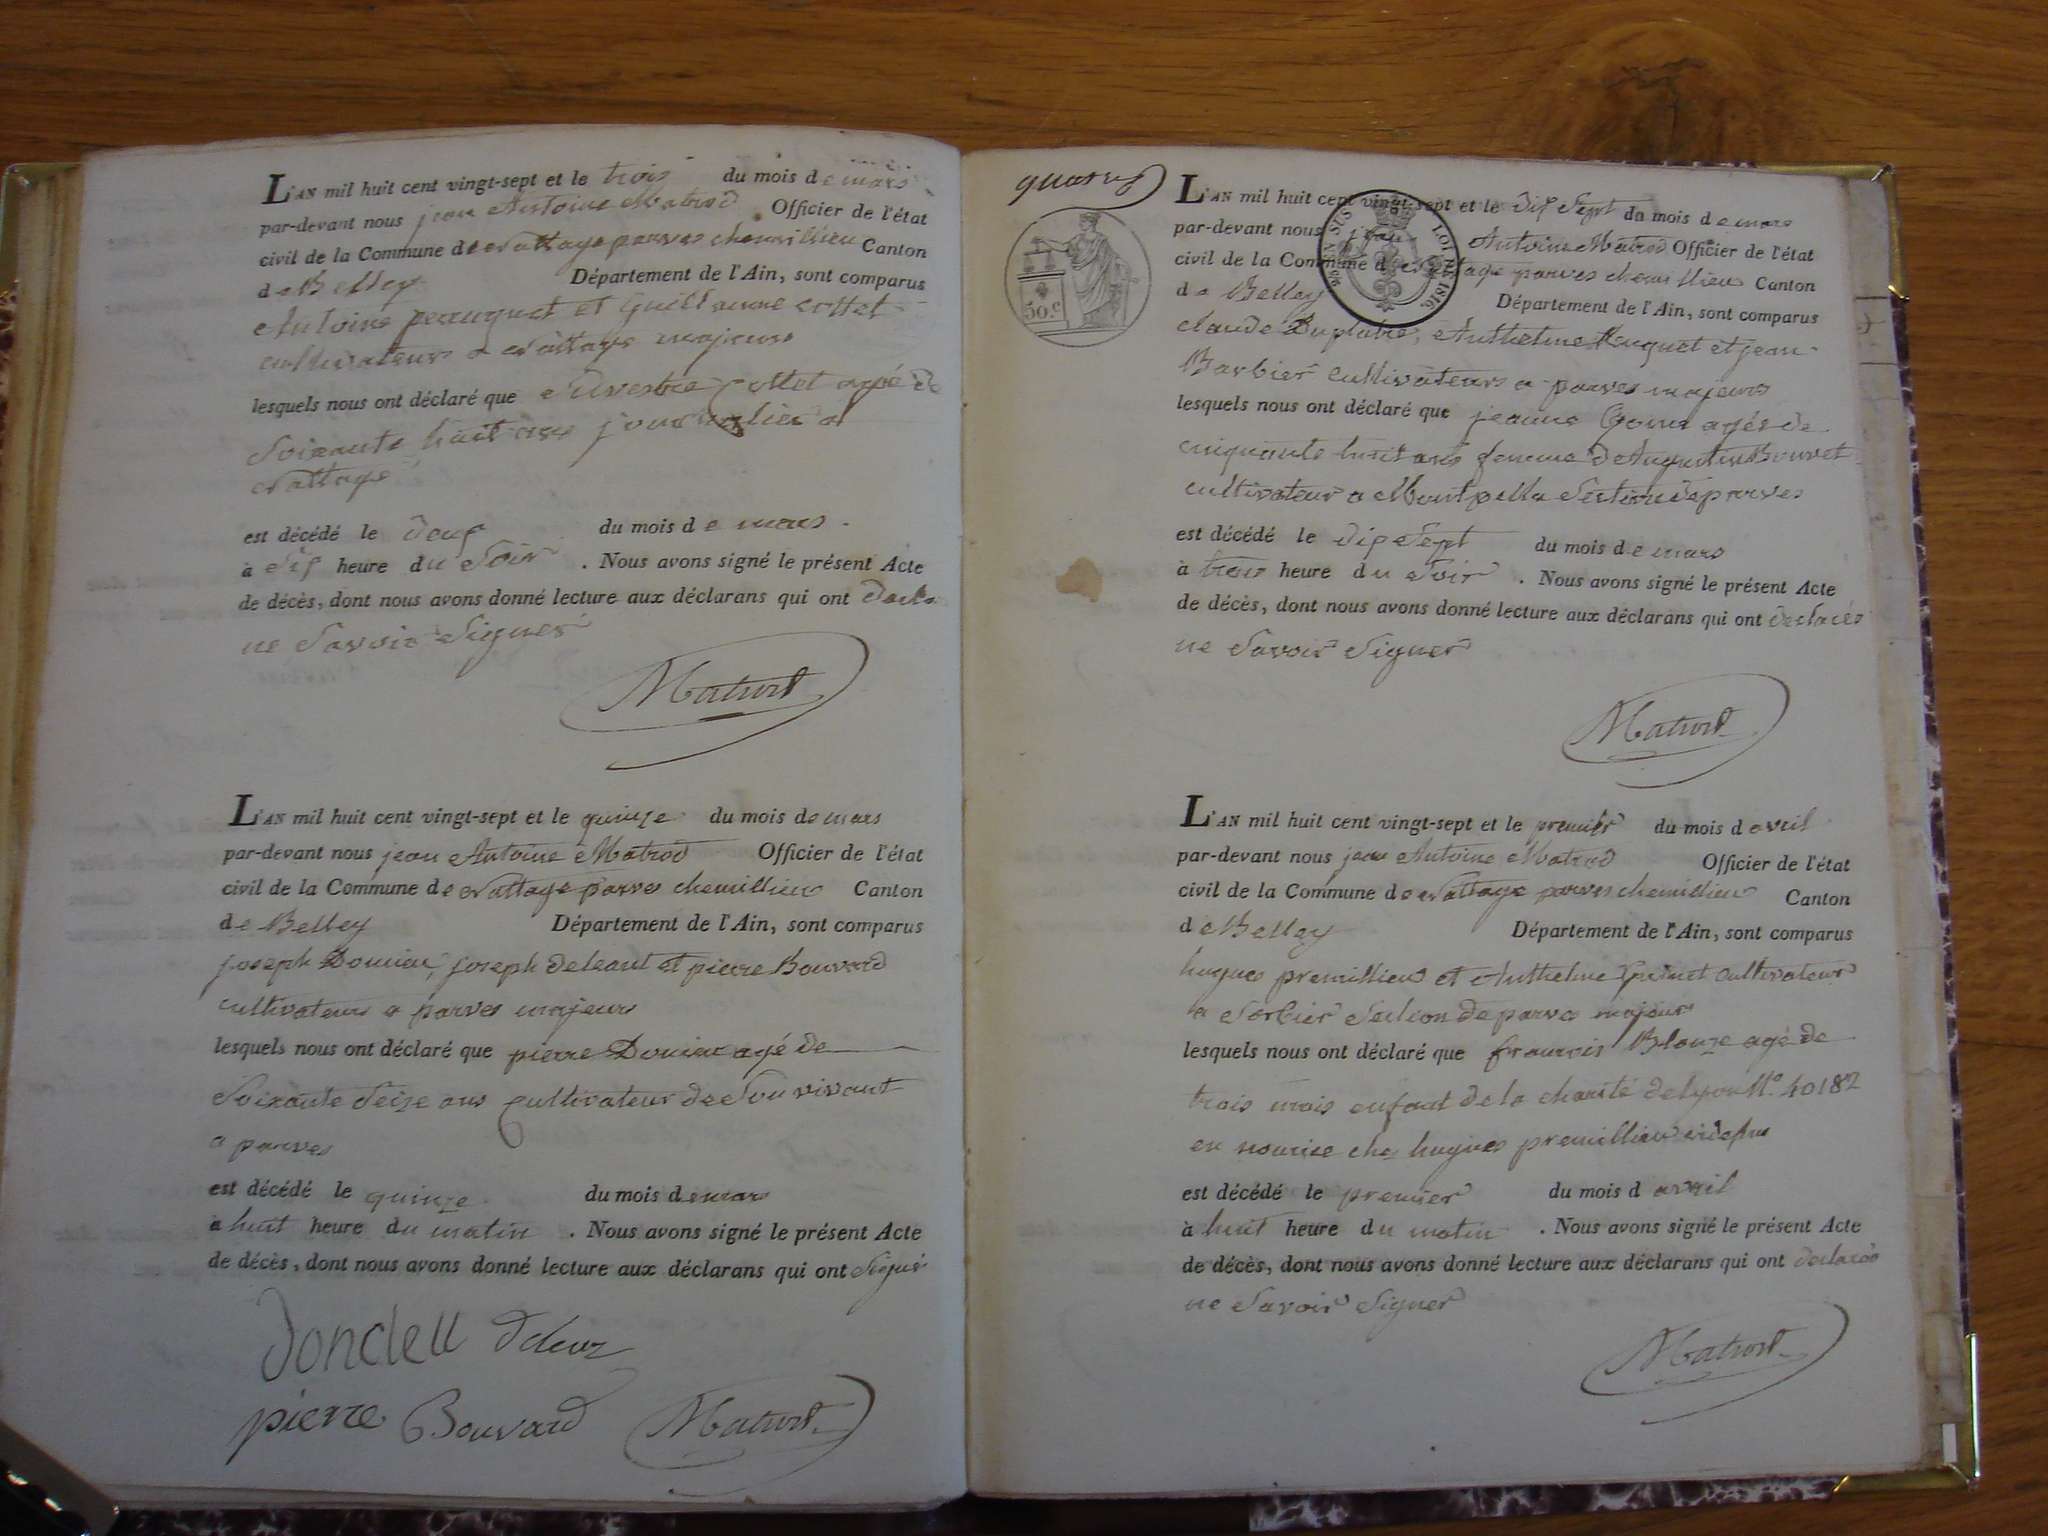 L'AN mil huit cent vingt-sept et le trois du mois de mars
par-devant nous jean Antoine Matrod Officier de l'état
civil de la Commune de Nattage parves chemillieu Canton
de Belley Département de l'Ain, sont comparus
Antoine perruquet et Guillaume Cottet
cultivateurs a Nattage majeurs
lesquels nous ont déclaré que Silvestre Cottet agé de
Soixante huit ans journalier a
Nattage
est décédé le deux du mois de mars
à Six heure du Soir . Nous avons signé le présent Acte
de décès, dont nous avons donné lecture aux déclarans qui ont
ne Savoir Signer
Matrod
L'AN mil huit cent vingt-sept et le quinze du mois de mars
par-devant nous jean Antoine Matrod Officier de l'état
civil de la Commune de Nattage parves chemillieu Canton
de Belley Département de l'Ain, sont comparus
joseph joseph et pierre Bouvard
cultivateurs a parves majeurs
lesquels nous ont déclaré que pierre agé de
Soixante Seize ans Cultivateur de Son vivant
a parves
est décédé le quinze du mois de mars
à huit heure du matin . Nous avons signé le présent Acte
de décès, dont nous avons donné lecture aux déclarans qui ont Signé
pierre Bouvard Matrod
50.c
LOI DE 1816.
L'AN mil huit cent vingt-sept et le dix Sept du mois de mars
par-devant nous jean Antoine Matrod Officier de l'état
civil de la Commune de Nattage parves chemillieu Canton
de Belley Département de l'Ain, sont comparus
claude Anthelme et jean
Barbier cultivateurs a parves majeurs
lesquels nous ont déclaré que jeanne agée de
cinquante huit ans femme de Augustin Bouvet
cultivateur a Montpella Section de parves
est décédé le dix Sept du mois de mars
à trois heure du Soir . Nous avons signé le présent Acte
de décès, dont nous avons donné lecture aux déclarans qui ont declarés
ne Savoir Signer
Matrod
L'AN mil huit cent vingt-sept et le premier du mois d avril
par-devant nous jean Antoine Matrod Officier de l'état
civil de la Commune de Nattage parves chemillieu Canton
de Belley Département de l'Ain, sont comparus
hugues premillieu et Anthelme cultivateurs
a Sorbier Section de parves majeurs
lesquels nous ont déclaré que françois Blonze agé de
trois mois enfant de la charité de lyon N.o 40182
en nourice chez hugues premillieu
est décédé le premier du mois d avril
à huit heure du matin . Nous avons signé le présent Acte
de décès, dont nous avons donné lecture aux déclarans qui ont declarés
ne Savoir Signer
Matrod